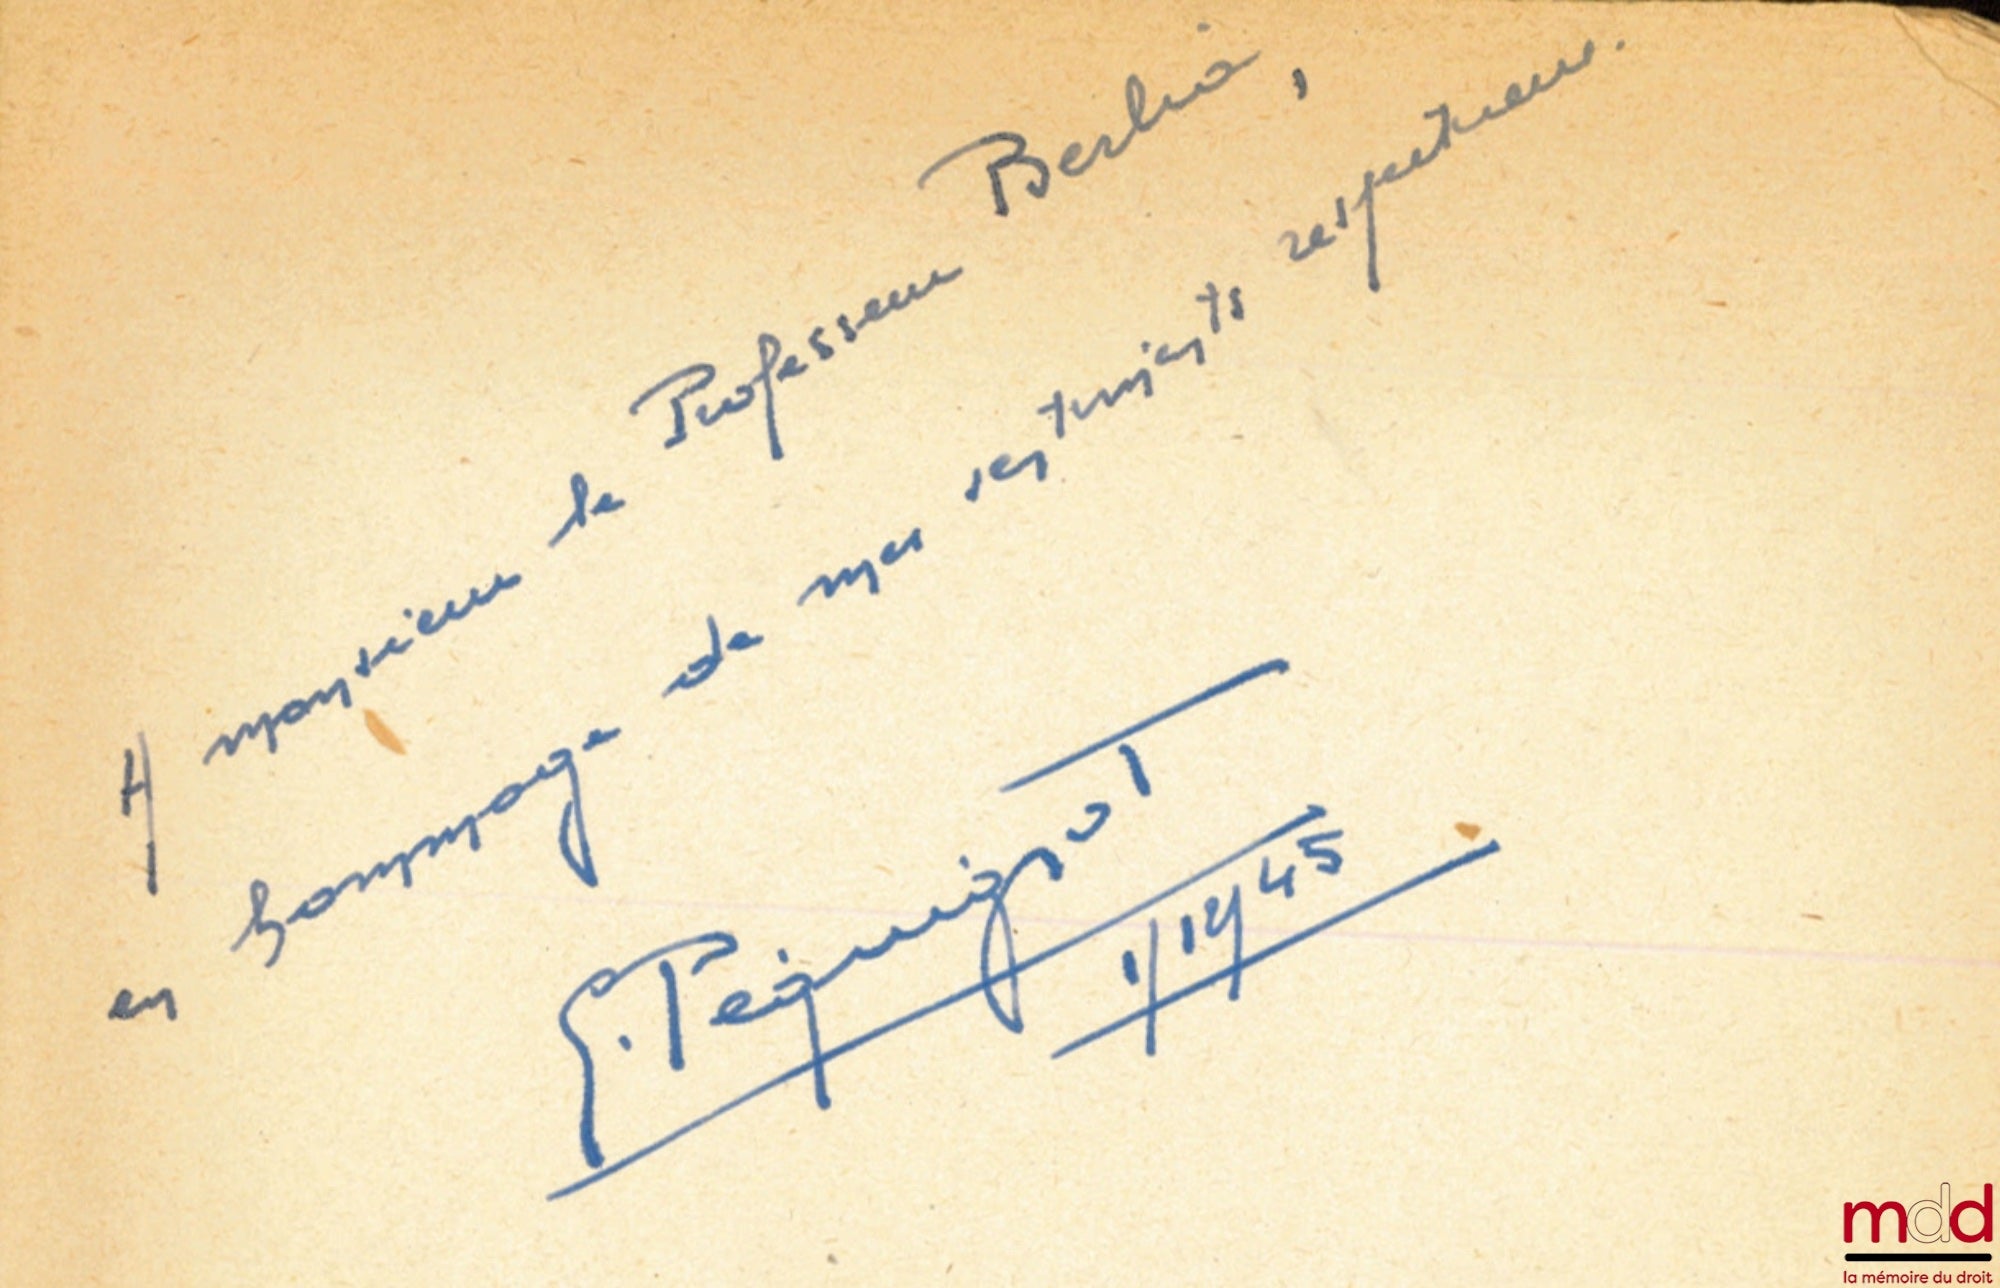 A monsieur le Professeur Berlia,
en hommage de mes sentiments respectueux.
G. Péquignot
1/12/45
mdd
la mémoire du droit